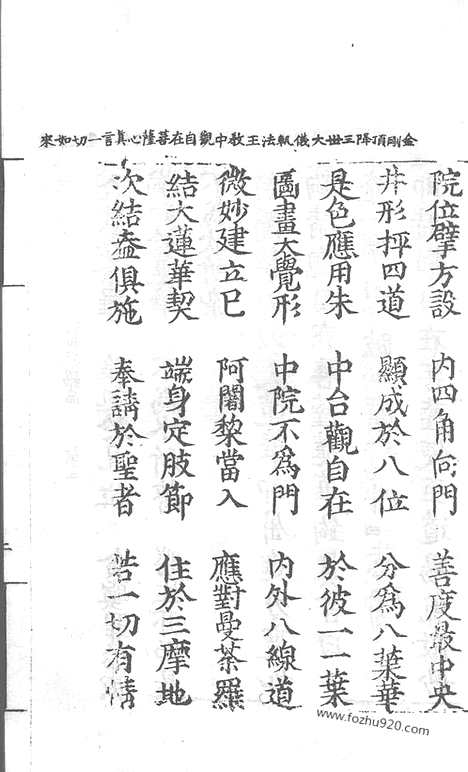 金剛頂降三世大儀軌法王教中觀自在菩薩心真言一切如來
院位擘方設　內四角向門　善度最中央
井形抨四道　顯成於八位　分為八葉華
是色應用朱　中台觀自在　於彼一一葉
圖畫大覺形　中院不為門　內外八線道
微妙建立已　阿闍黎當入　應對曼荼羅
結大蓮華契　端身定肢節　住於三摩地
次結盍俱施　奉請於聖者　詰一切有情
www.fozhu920.com